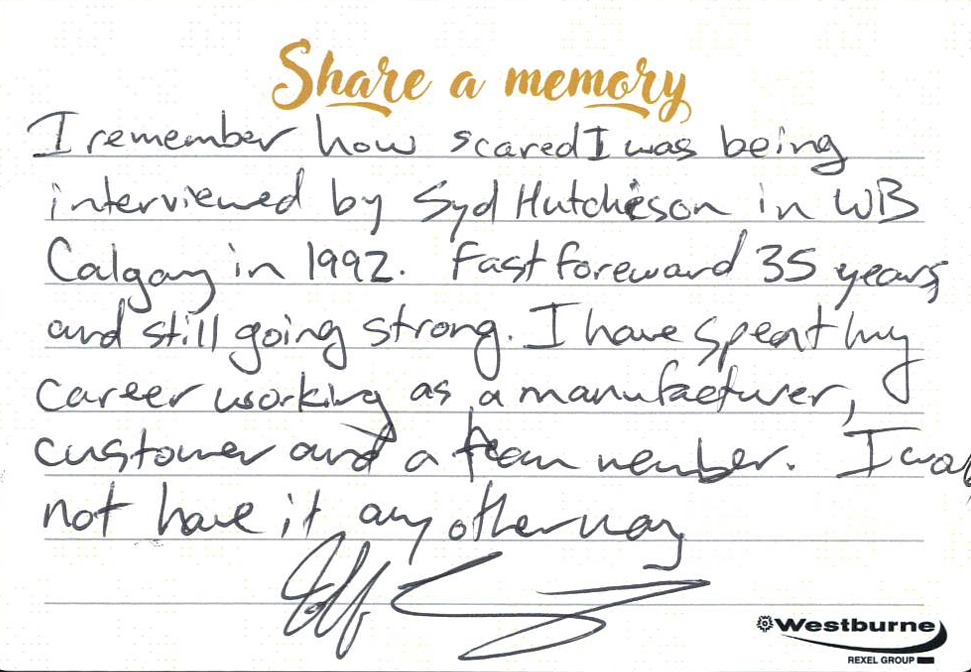 Share a memory
I remember how scared I was being
interviewed by Syd Hutcheson in WB
Calgary in 1992. Fast foreward 35 years
and still going strong. I have spent my
career working as a manufacturer,
customer and a team member. I
not have it any other way
Westburne
REXEL GROUP